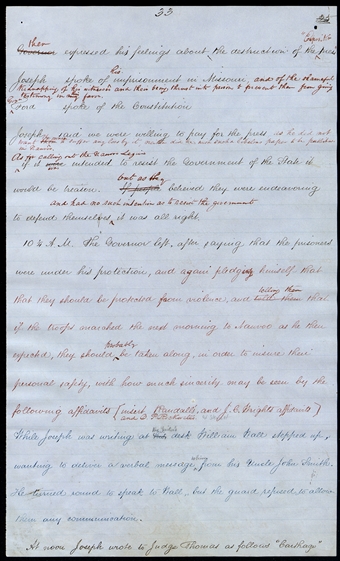 33
then "Expositor"
Governor expressed his feelings about the destruction of the press
his
Joseph spoke of imprisonment in Missouri, and of the shameful
kidnapping of his witnesses and their being thrust into prison to prevent them from giving
testimony in his favor
Gov.
Ford spoke of the Constitution
Joseph said we were willing to pay for the press as he did not
want to suffer any loss by it, such a libelous paper to be published
in Nauvoo
As for calling out the Nauvoo Legion
if it were intended to resist the Government of the State it
but as they
would be treason. believed they were endeavouring
and had no such intention as to resist the government
to defend themselves, it was all right.
10 1/4 A.M. The Governor left, after saying that the prisoners
were under his protection, and again pledging himself that
that they should be protected from violence, and telling them that
if the troops marched the next morning to Nauvoo as he then
probably
expected, they should be taken along, in order to insure their
personal safety, with how much sincerity may be seen by the
following affidavits [insert Randall's, and J. C. Wright's affidavit]
While Joseph was writing at the desk William Wall stepped up,
wanting to deliver a verbal message from his Uncle John Smith.
He turned round to speak to Wall, but the guard refused to allow
them any communication.
At noon Joseph wrote to Judge Thomas as follows "Carthage